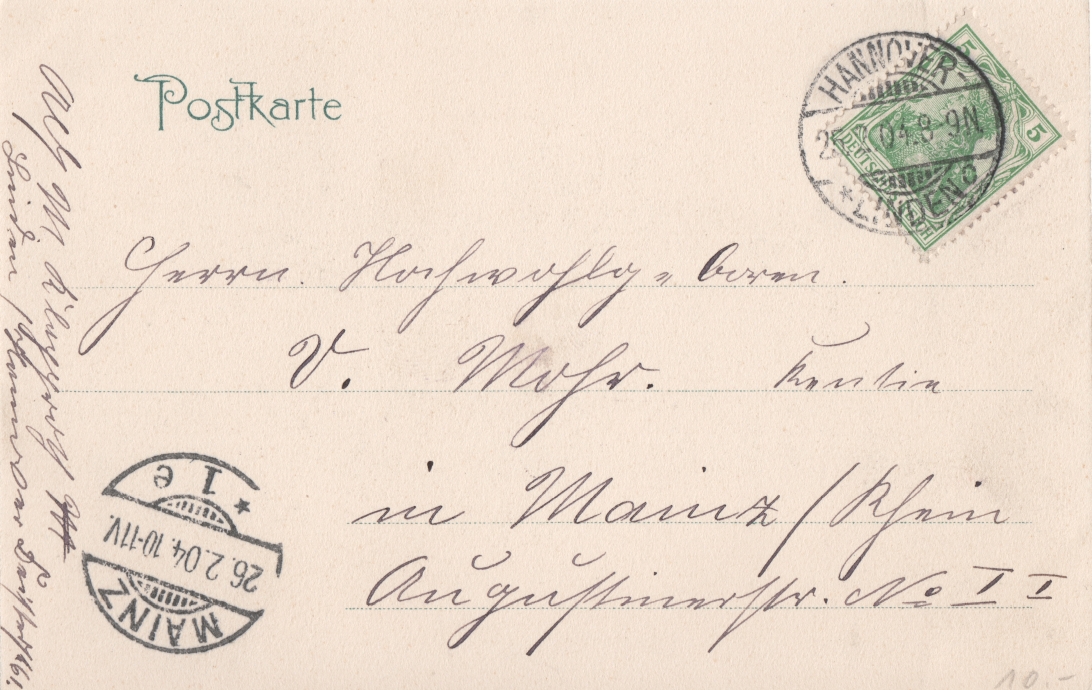 Postkarte
HANNOVER-
04.8-9N.
*LINDEN 3
5
5
DEUTSCHES REICH
Herrn. Hochwohlg=boren.
V. Mohr.
in Mainz / Rhein
Augustinerstr. No II
MAINZ
26.2.04.10-11V.
* 1 e
Linden / Hannover
10.-